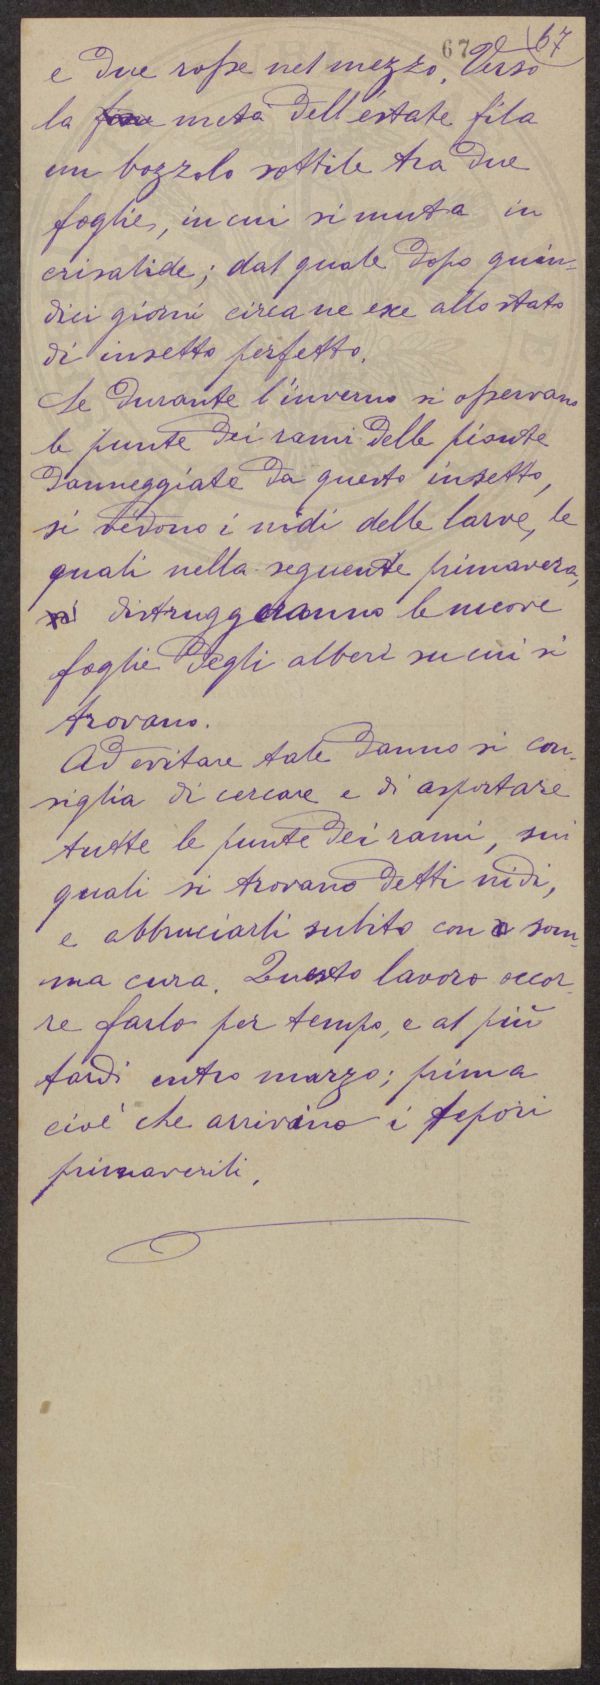 67 67
e due rosse nel mezzo. Verso
la fine metà dell'estate fila
un bozzolo sottile tra due
foglie, in cui si muta in
crisalide; dal quale dopo quin-
dici giorni circa ne esce allo stato
di insetto perfetto.
Se durante l'inverno si osservano
le punte dei rami delle piante
danneggiate da questo insetto,
si vedono i nidi delle larve, le
quali nella seguente primavera,
distruggeranno le nuove
foglie degli alberi su cui si
trovano.
Ad evitare tale danno si con-
siglia di cercare e di asportare
tutte le punte dei rami, sui
quali si trovano detti nidi,
e abbruciarli subito con som-
ma cura. Questo lavoro occor-
re farlo per tempo, e al più
tardi entro marzo; prima
cioè che arrivino i tepori
primaverili.